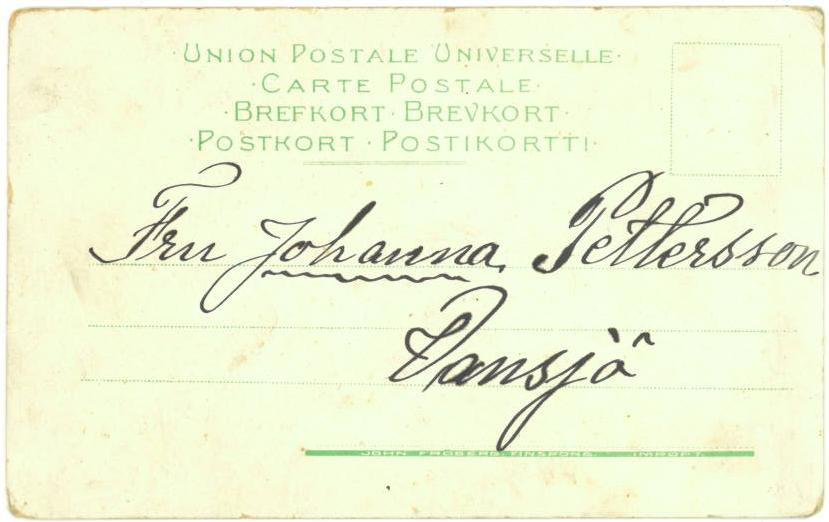 ·UNION POSTALE UNIVERSELLE·
·CARTE POSTALE·
·BREFKORT·BREVKORT·
·POSTKORT·POSTIKORTTI·
Fru Johanna Pettersson
Vansjö
JOHN FRÖBERG. FINSPONG. IMPORT.